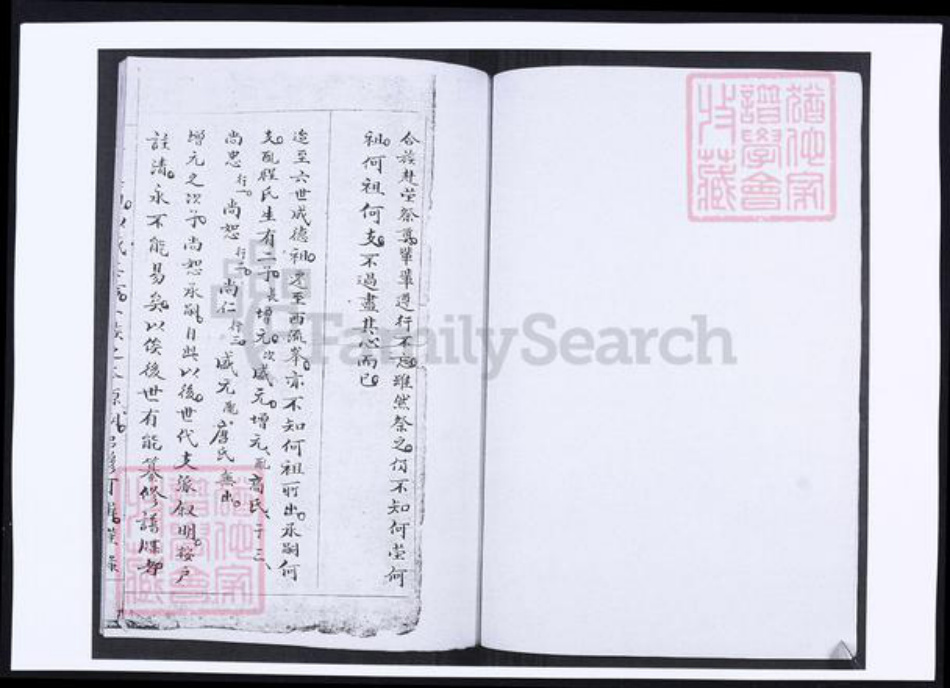 合族赴塋祭奠輩輩遵行不忘雖然祭之仍不知何塋何
祖何祖何支不過盡其心而已
迨至六世成德祖 至西流峯亦不知何祖所出承嗣何
支配程氏生有二子長增元次盛元增元配喬氏子三
尚忠行一尚恕行二尚仁行三盛元配詹氏無出
增元之次子尚恕承嗣自此以後世代支派叙明按户
註清永不能易矣以俟後世有能纂修譜牒者
猶他家譜學會收藏
猶他家譜學會收藏
FamilySearch